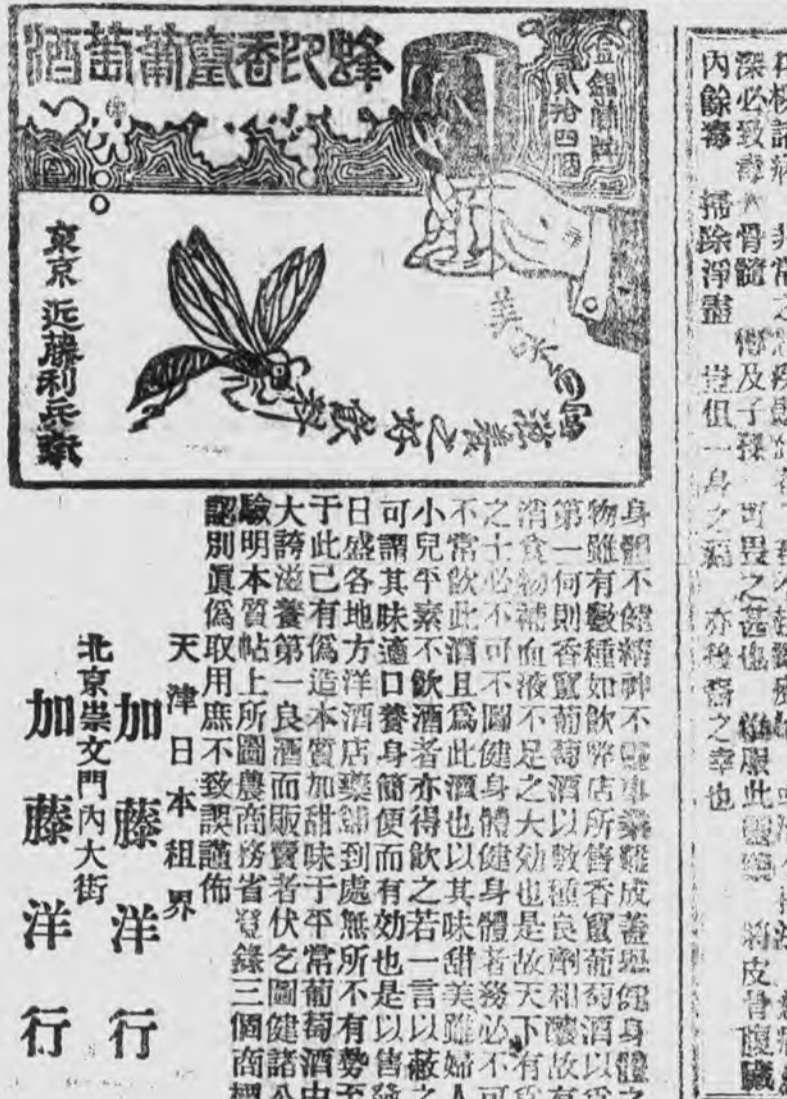 蜂印香竄葡萄酒
東京 近藤利兵衛
美味
滋養之好飲料
身體不健精神不 事業難成蓋 健身體之
物雖有數種如飲弊店所售香竄葡萄酒以爲
第一何則香竄葡萄酒以數種良劑相釀故有
消食物補血液不足之大効也是故天下有
之士必不可不圖健身體健身體者務必不可
不常飲此酒且爲此酒也以其味甜美雖婦人
小兒平素不飲酒者亦得飲之若一言以蔽之
可謂其味適口養身簡便而有効也是以售發
日盛各地方洋酒店藥舖到處無所不有勢至
于此已有僞造本質加甜味于平常葡萄酒中
大誇滋養第一良酒而販賣者伏乞圖健諸公
驗明本質帖上所圖農商務省登錄三個商標
認別眞僞取用庶不致誤謹佈
天津日本租界
加藤洋行
北京崇文門內大街
加藤洋行
深必致毒 骨髓 及子孫 可畏之甚也 服此靈藥 將皮骨腹臟
內餘毒 掃除淨盡 豈但一身之 亦後裔之幸也